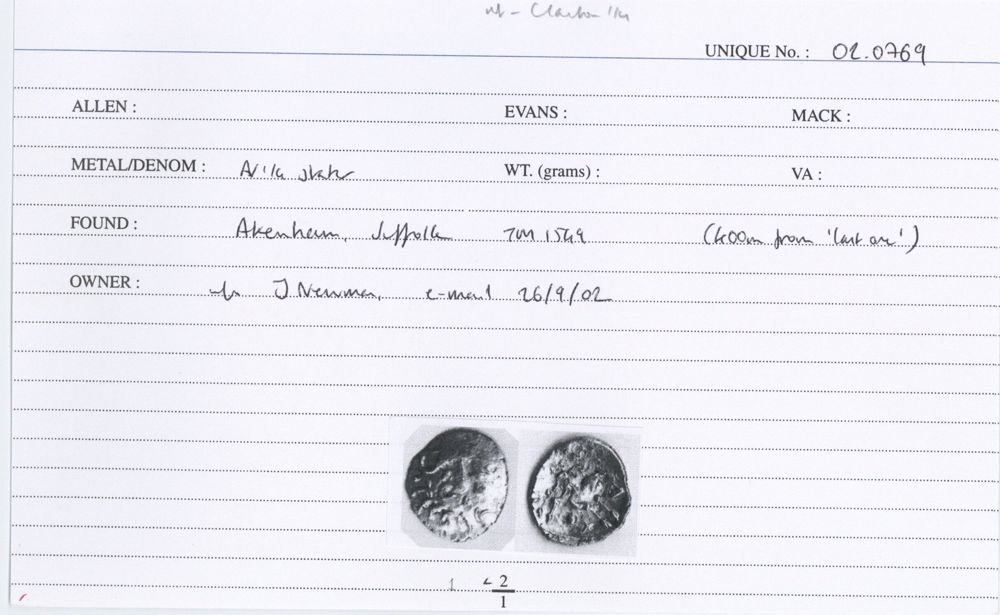 Clacton 1/4
UNIQUE No. : 02.0769
ALLEN : EVANS : MACK :
METAL/DENOM : AV 1/4 stater WT. (grams) : VA :
FOUND : Akenham, Suffolk TM 1549 (400m from 'last one')
OWNER : J Newman, e-mail 26/9/02
1 2
1